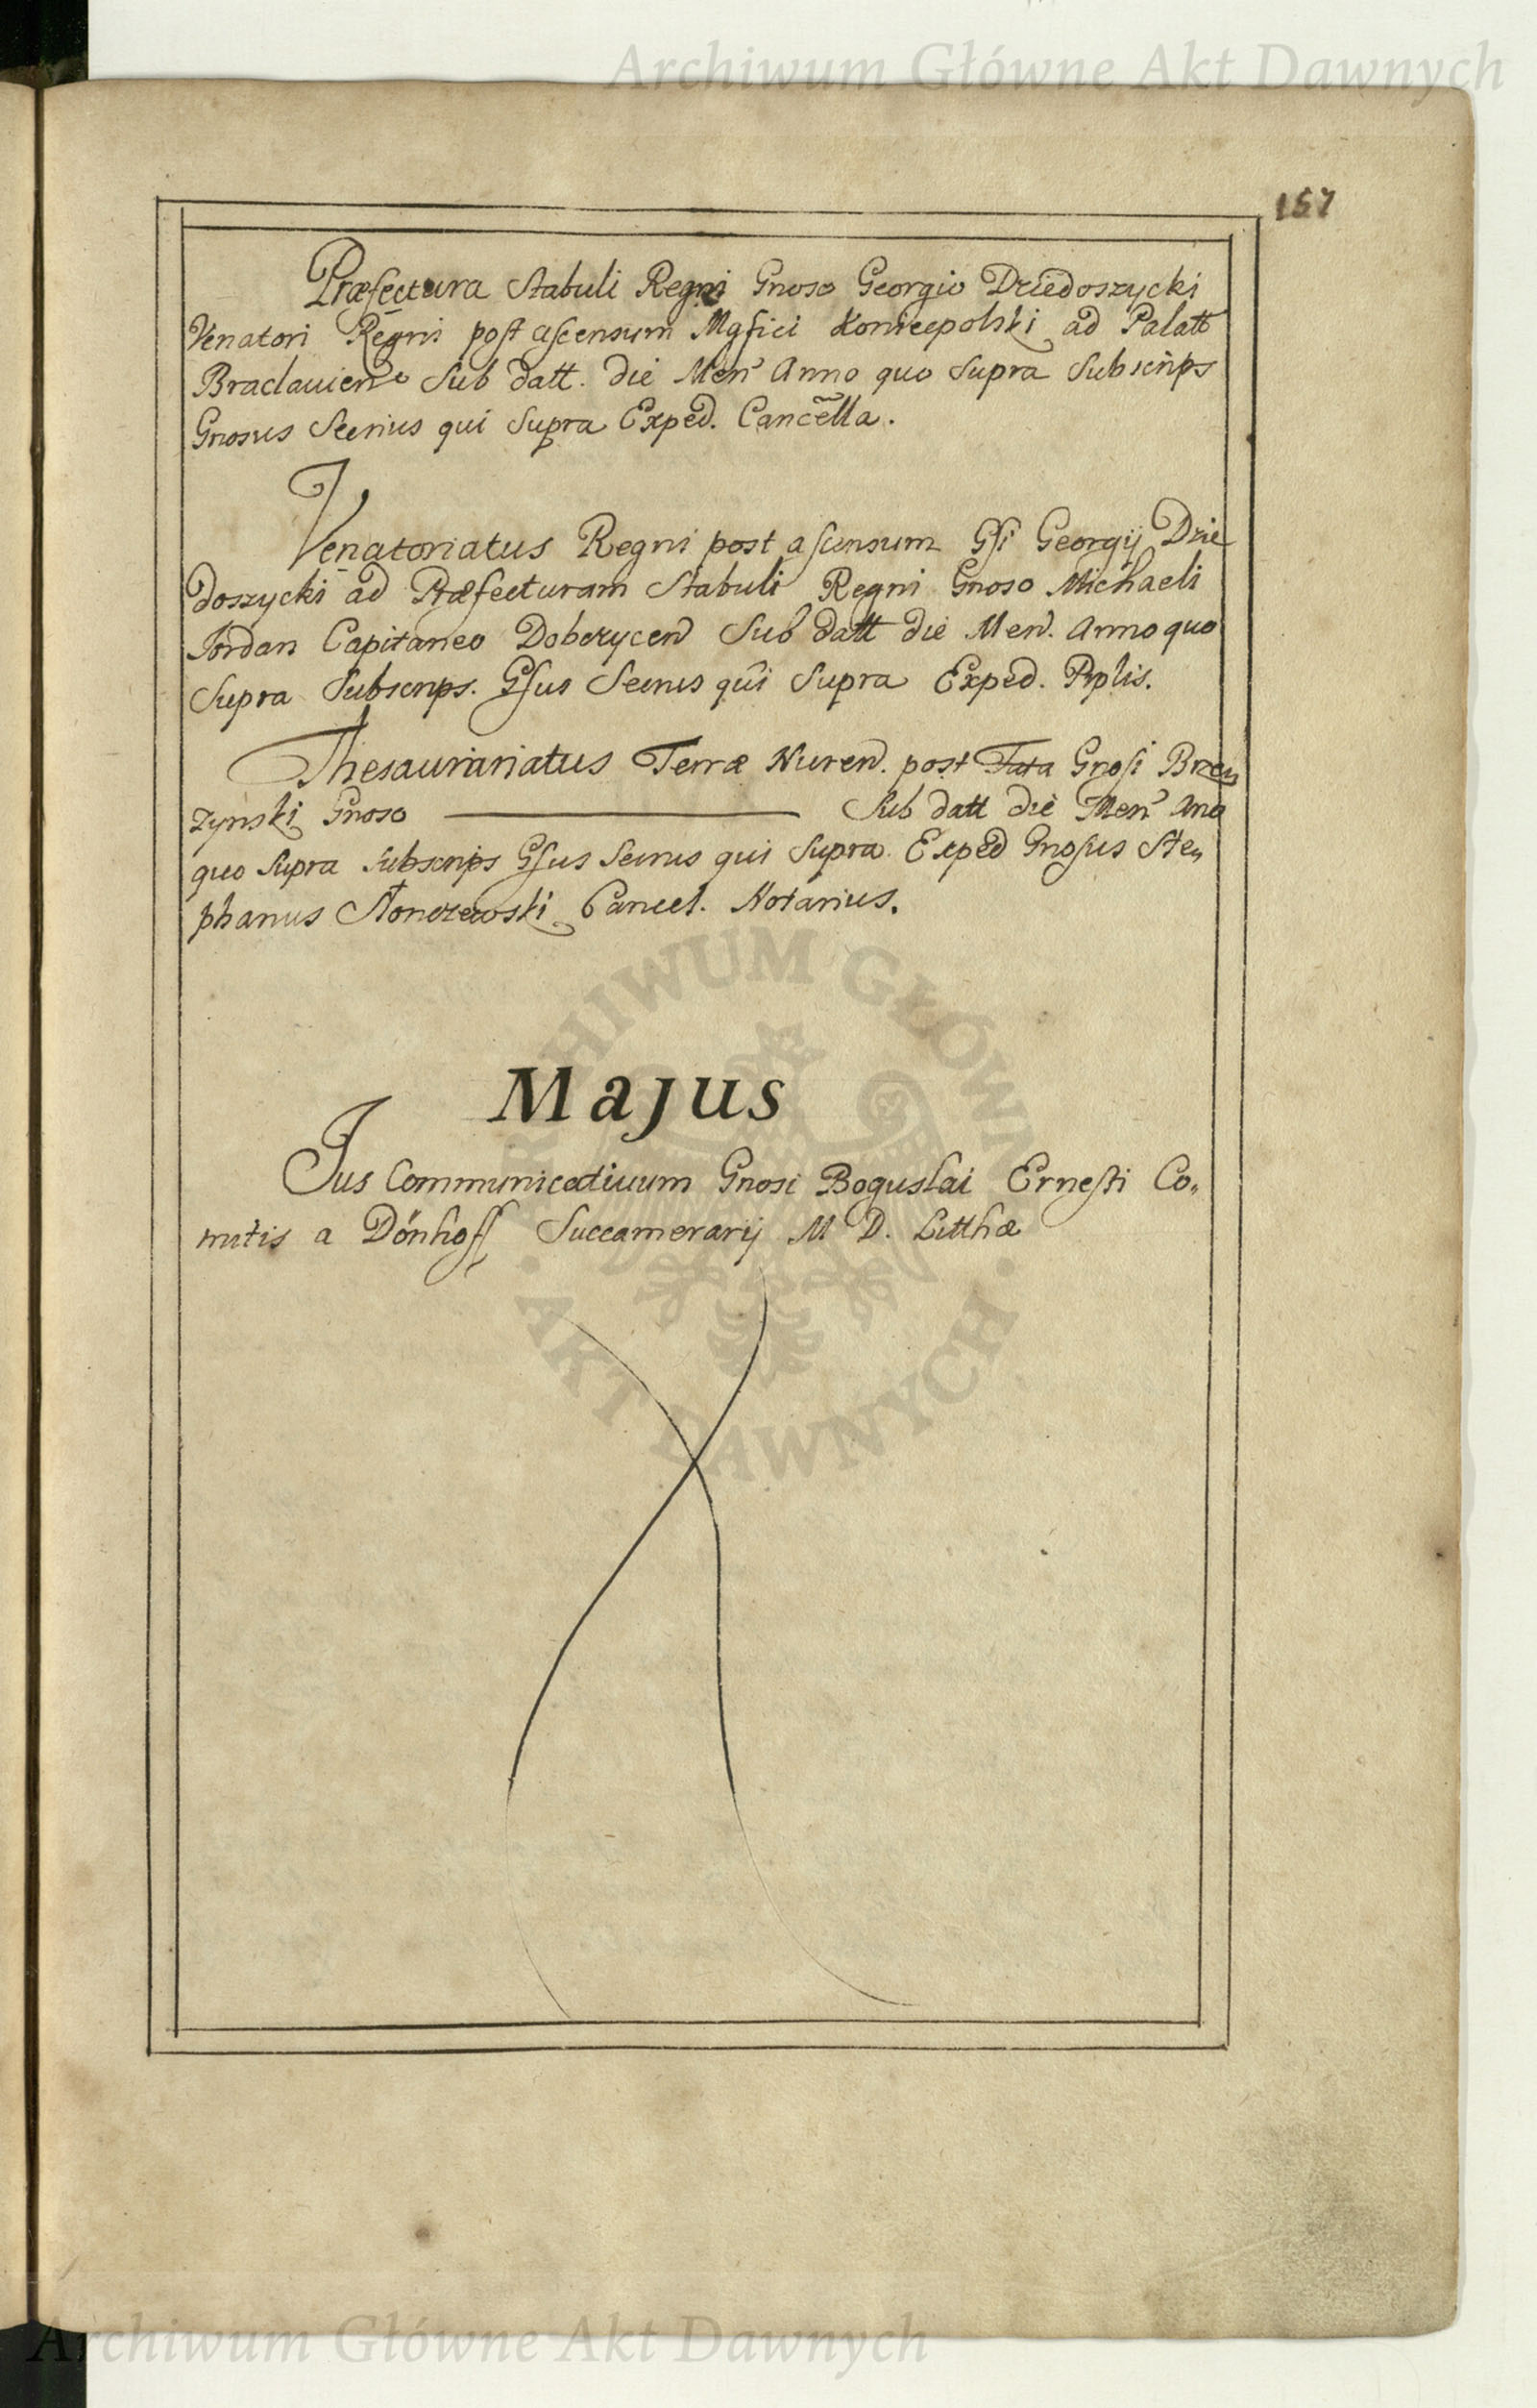 Archiwum Główne Akt Dawnych
157
Præfectura Stabuli Regni Gnoso Georgio Dziedoszycki
Venatori Regni post ascensum Mgfici Koniecpolski ad Palatt
Braclavien Sub datt. die Men Anno quo Supra Subscrips
Gnosus Secrius qui Supra Exped. Cancella.
Venatoriatus Regni post ascensum Gsi Georgij Dzie
doszycki ad Præfecturam Stabuli Regni Gnoso Michaeli
Jordan Capitaneo Dobczycen Sub datt die Men. Anno quo
Supra Subscrips. Gsus Secrius qui Supra Exped. Rplis.
Thesaurariatus Terræ Nuren. post Fata Gnosi Brzu
zynski Gnoso ——— Sub datt die Men Ano
quo Supra Subscrips Gsus Secrius qui Supra Exped Gnosus Ste„
phanus Slonczewski Cancel. Notarius.
Majus
Jus Communicativum Gnosi Boguslai Ernesti Co„
mitis a Dönhoff Succamerarij M D. Litthæ
ARCHIWUM GŁÓWNE
AKT DAWNYCH
Archiwum Główne Akt Dawnych